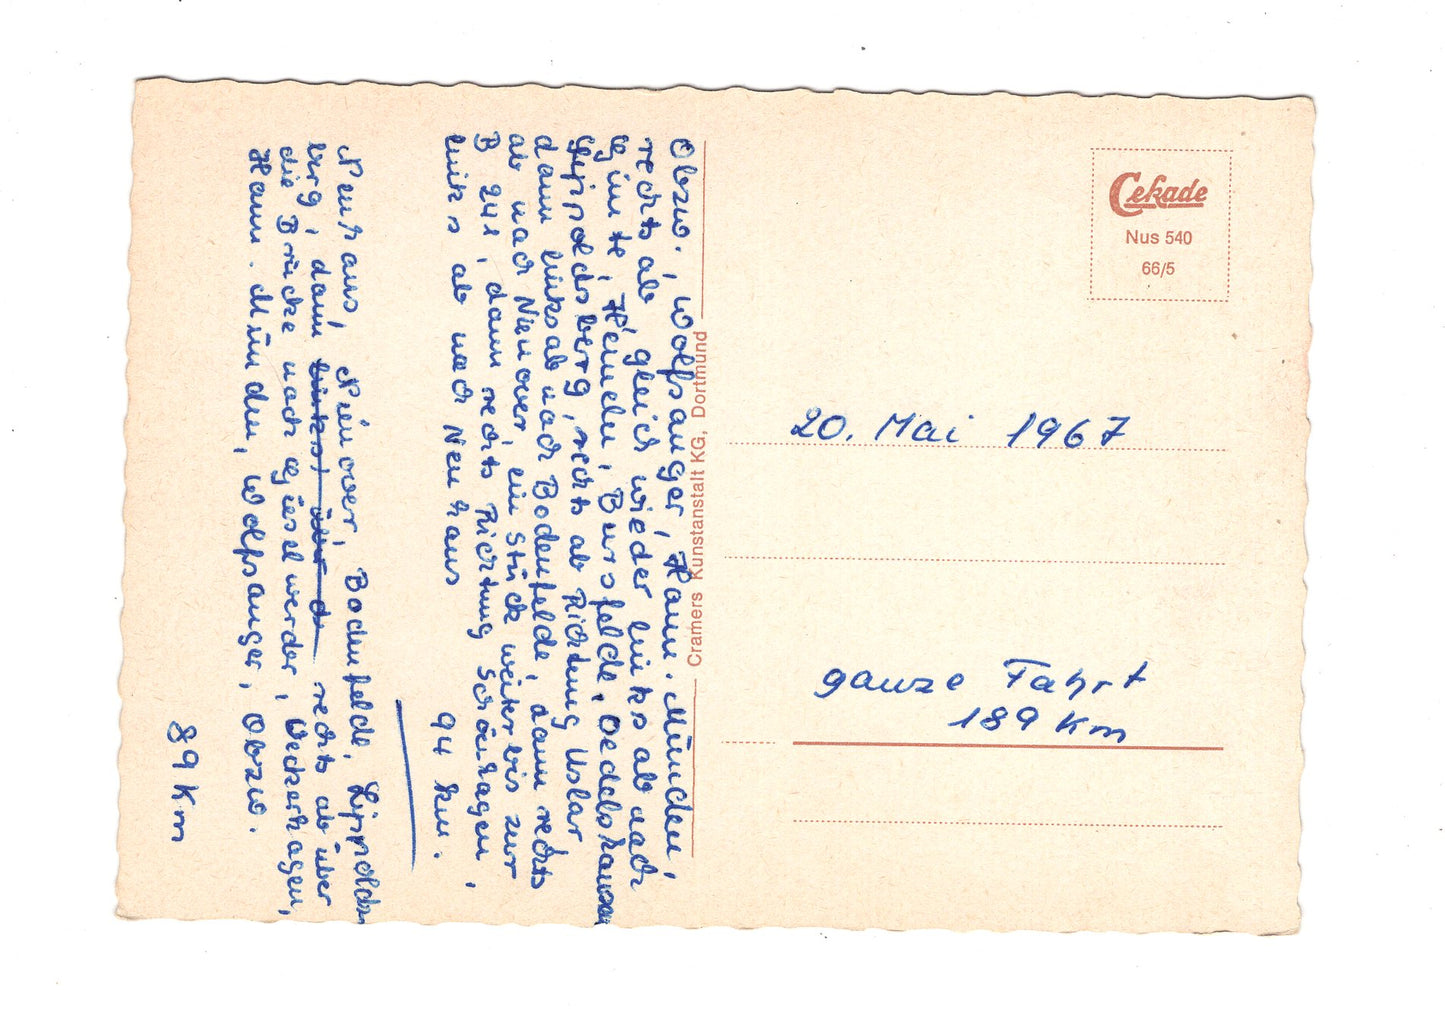 Obzw., Wolfsanger, Hann. Münden,
rechts ab gleich wieder links ab nach
Gimte, Hemeln, Bursfelde, Oedelshausen
Gippoldsberg, rechts ab Richtung Uslar
dann links ab nach Bodenfelde, dann rechts
ab nach Nienover, ein Stück weiter bis zur
B 241, dann rechts Richtung Schönhagen,
links ab nach Neuhaus
94 km.
Neuhaus, Nienover, Bodenfelde, Lippolds-
berg, dann links, über d rechts ab über
die Brücke nach Gieselwerder, Veckerhagen,
Hann. Münden, Wolfsanger, Obzw.
89 Km
Cramers Kunstanstalt KG, Dortmund
Cekade
Nus 540
66/5
20. Mai 1967
ganze Fahrt
189 Km